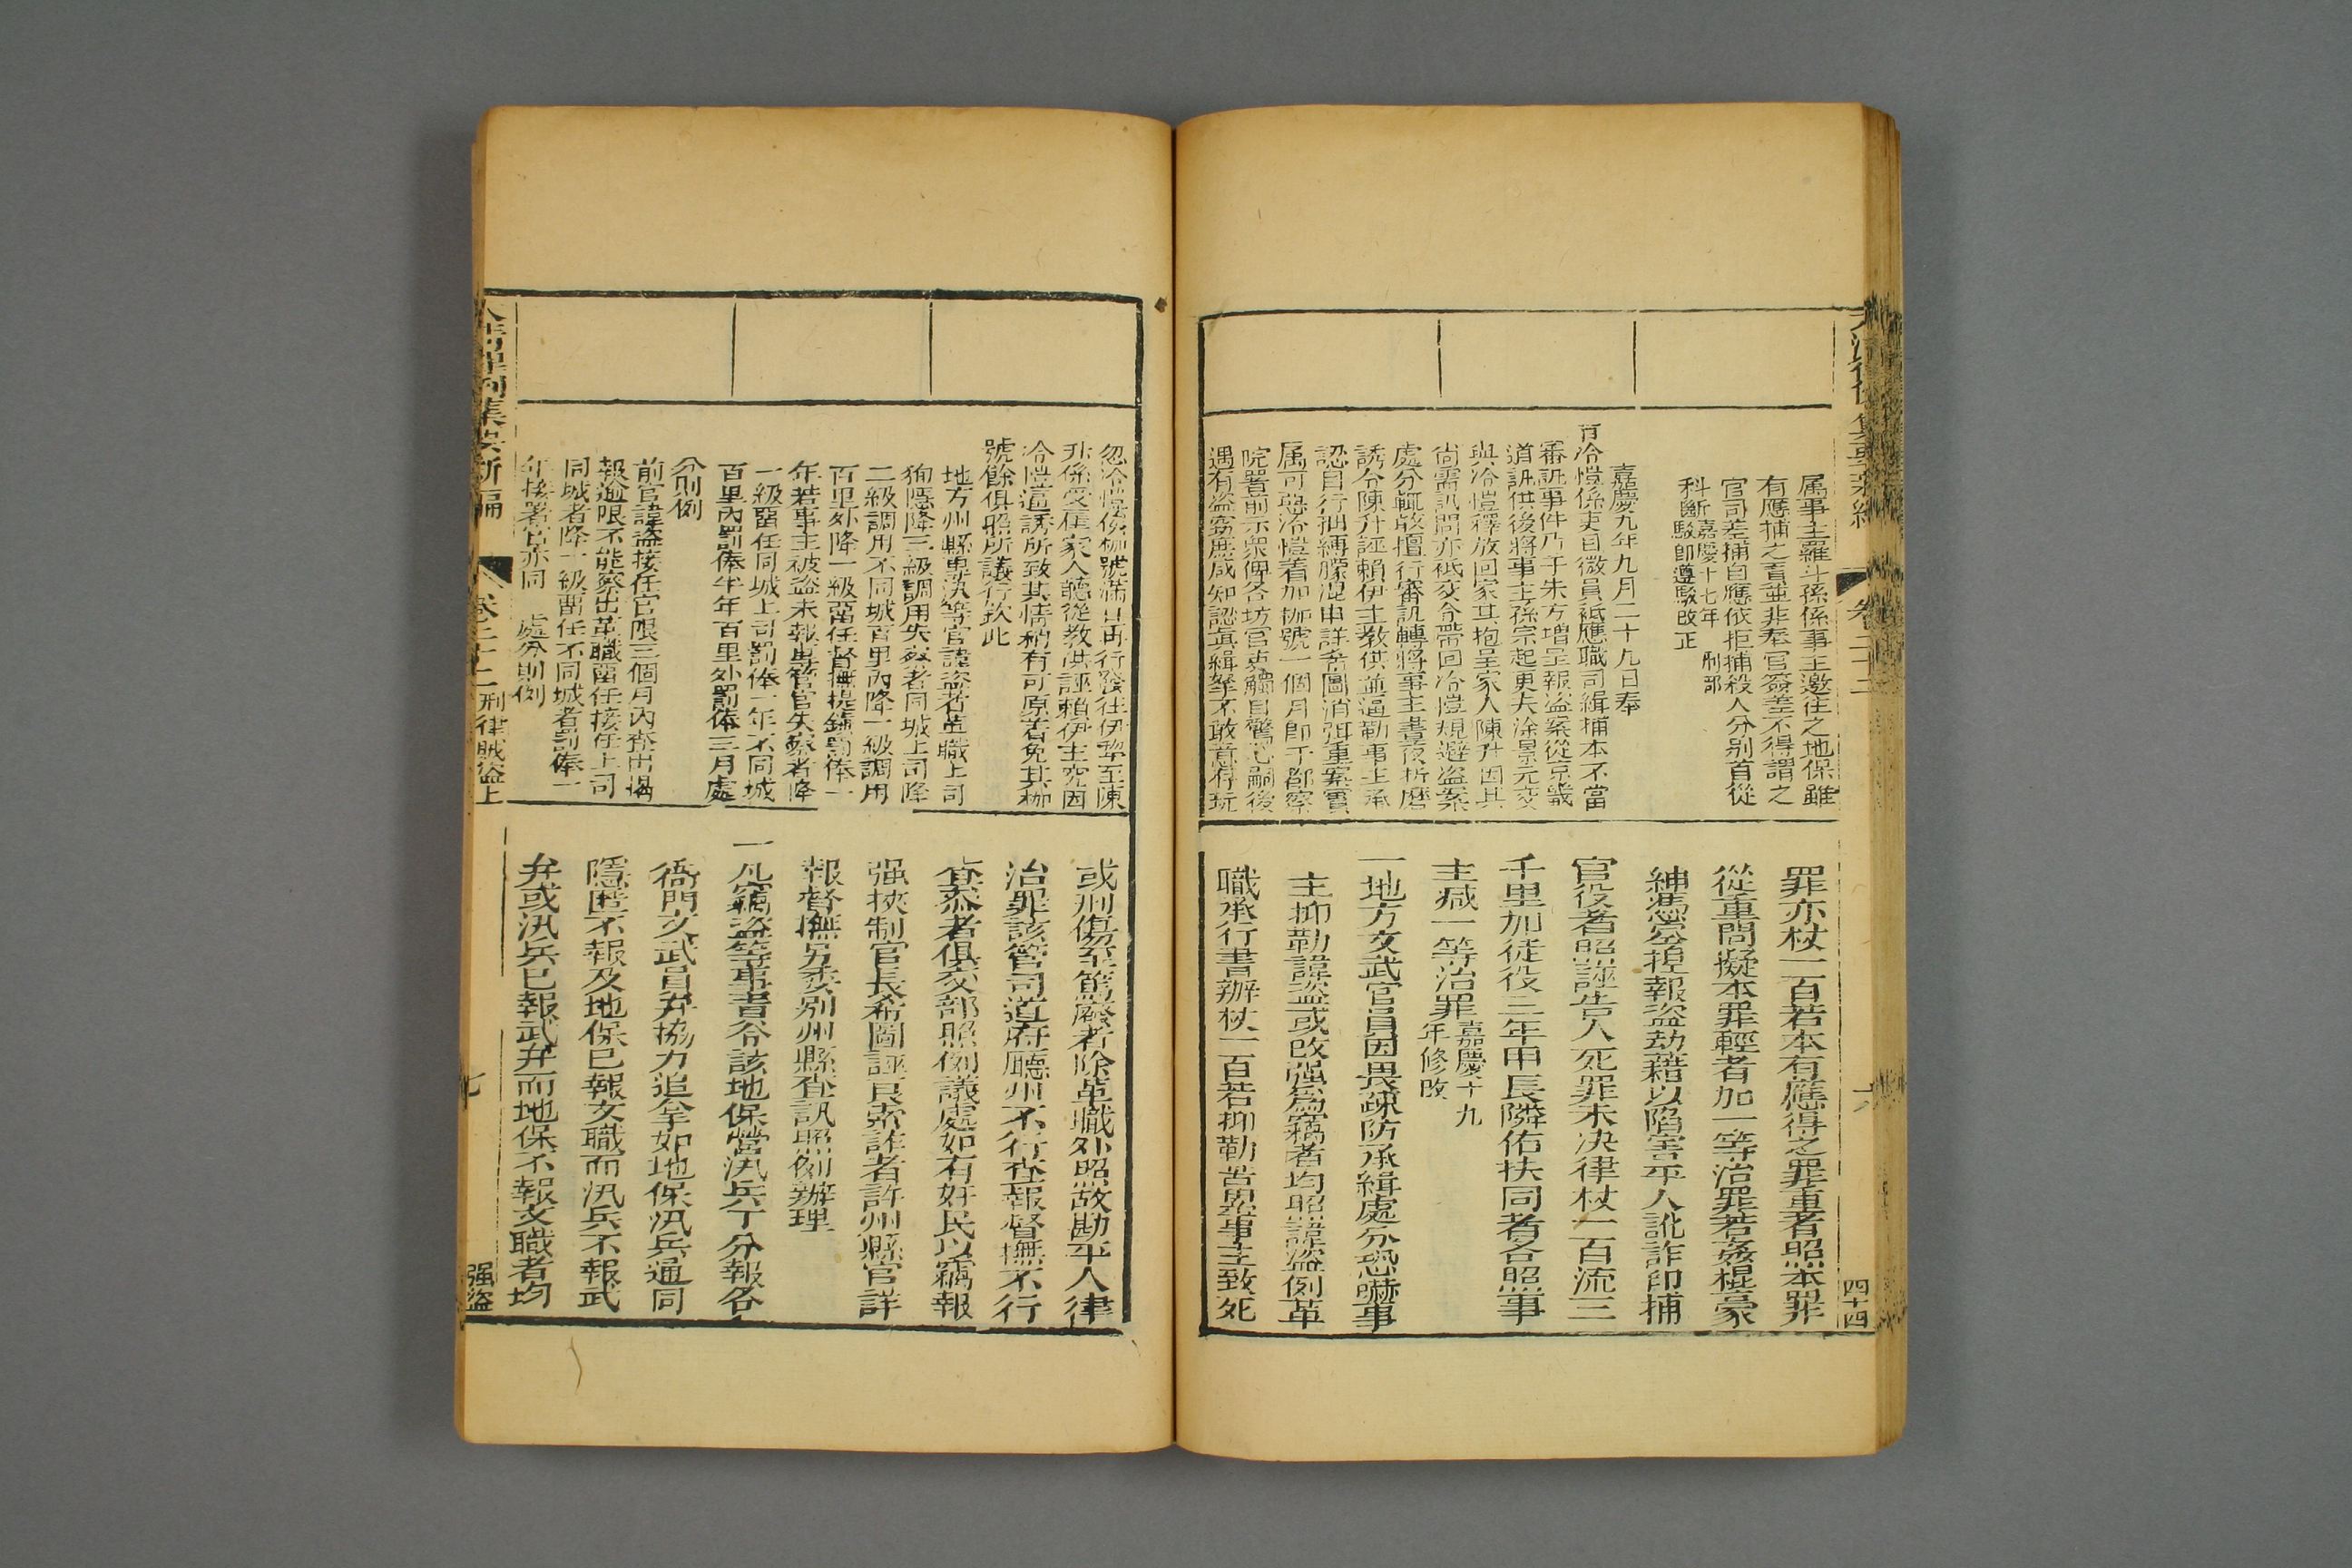 属事主羅斗孫係事主邀往之地保雖
有應捕之責並非奉官簽差不得謂之
官司差捕自應依拒捕殺人分别首從
科斷嘉慶十七年刑部
駁即遵駁改正
嘉慶九年九月二十九日奉
冷愷係吏目微員祗應職司緝捕本不當
審訊事件乃于朱方增呈報盗案從京畿
道訊供後將事主孫宗起更夫涂景元交
與冷愷釋放回家其抱呈家人陳升因其
尚需訊問亦祗交令帶回冷愷規避盗案
處分輒敢擅行審訊轉將事主晝夜折磨
誘令陳升誣賴伊主教供並逼勒事主承
認自行捆縛朦混申詳希圖消弭重案實
属可惡冷愷着加枷號一個月即于都察
院署前示衆俾各坊官吏觸目驚心嗣後
遇有盗竊庶咸知認眞緝拏不敢意存玩
罪亦杖一百若本有應得之罪重者照本罪
從重問擬本罪輕者加一等治罪若姦棍豪
紳憑空揑報盗劫藉以陷害平人訛詐印捕
官役者照誣告人死罪未决律杖一百流三
千里加徒役三年甲長隣佑扶同者各照事
主减一等治罪嘉慶十九
年修改
一地方文武官員因畏疎防承緝處分恐嚇事
主抑勒諱盗或改强爲竊者均照諱盗例革
職承行書辦杖一百若抑勒苦累事主致死
四十四
忽冷愷俟枷號滿日再行發往伊犂至陳
升係受雇家人聽從教供誣賴伊主究因
冷愷逼誘所致其情稍有可原着免其枷
號餘俱照所議行欽此
地方州縣專汛等官諱盗者革職上司
狥隱降三級調用失察者同城上司降
二級調用不同城百里内降一級調用
百里外降一級畱任督撫提鎮罰俸一
年若事主被盗未報專管官失察者降
一級畱任同城上司罰俸一年不同城
百里内罰俸半年百里外罰俸三月處
分則例
前官諱盗接任官限三個月内查出揭
報逾限不能察出革職畱任接任上司
同城者降一級畱任不同城者罰俸一
年接署官亦同 處分則例
或刑傷至篤廢者除革職外照故勘平人律
治罪該管司道府廳州不行查報督撫不行
查叅者俱交部照例議處如有奸民以竊報
强挾制官長希圖誣良索詐者許州縣官詳
報督撫另委别州縣查訊照例辦理
一凡竊盗等事責令該地保營汛兵丁分報各
衙門文武員弁協力追拿如地保汛兵通同
隱匿不報及地保已報文職而汛兵不報武
弁或汛兵已報武弁而地保不報文職者均
集
新編
卷二十二 刑律賊盗上
七
强盗